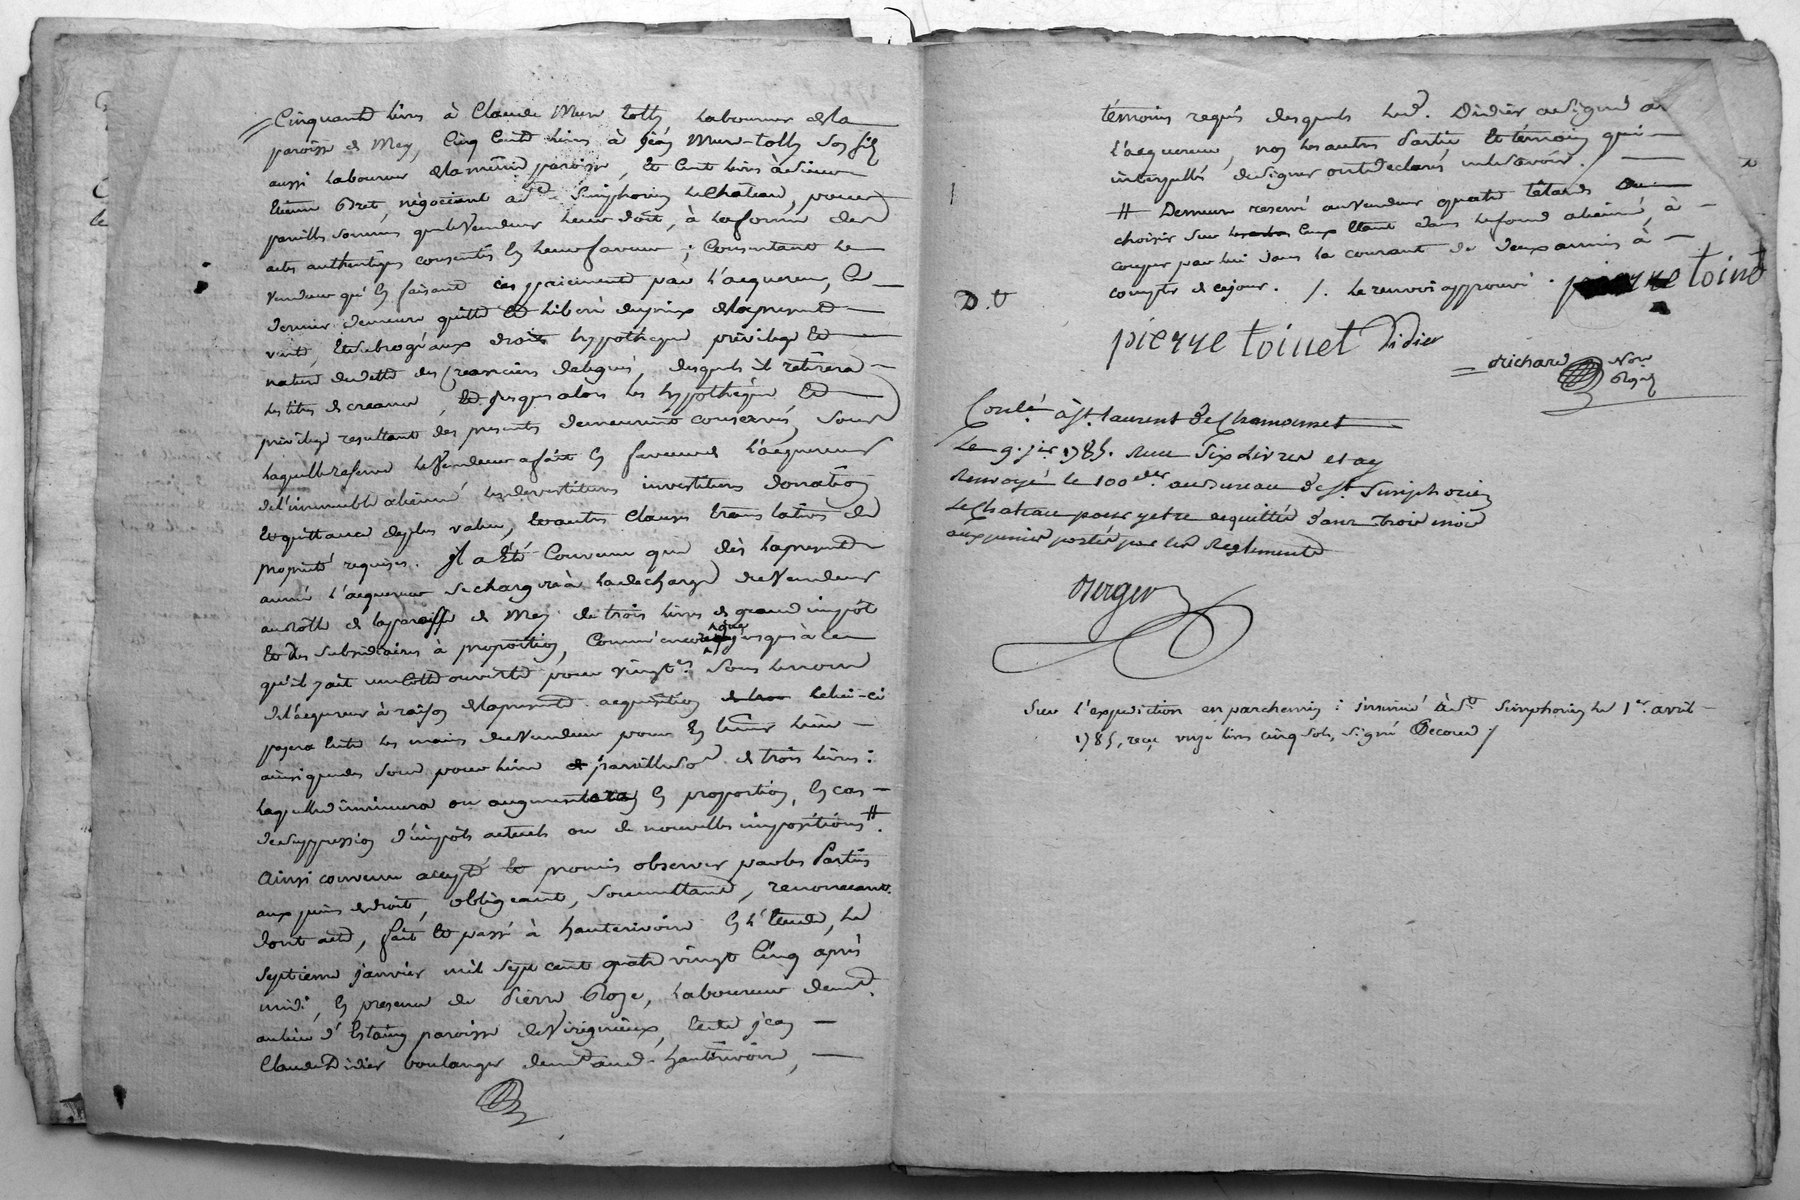 Cinquante livres à Claude Mure laboureur de la
paroisse de Mey, Cinq Cent livres à jean Mure son fils
aussi laboureur de la même paroisse, et Cent livres à sieur
Bret, négociant à St Simphorien le Chateau, pour
pareilles sommes que le Vendeur leur doit, à la forme des
actes authentiques consentis en leur faveur ; Consentant le
vendeur qu'en faisant ces paiements par l'acquereur, Ce
dernier demeure quitte et liberé du prix de la presente
vente, et subrogé aux droits hypotheque privilege et
nature de dette des Creanciers delegués, desquels il retirera
les titres de creance, et jusques alors les hypotheque et
privilege resultant des presentes demeureront conservés, sous
laquelle reserve le Vendeur a fait en faveur de l'acquereur
de l'immeuble aliené les devestitures investitures donation
et quittance de plus value, et autres Clauses translatives de
proprieté requises. Il a été Convenu que dès la presente
année l'acquereur se chargera à la decharge du Vendeur
au rolle de la paroisse de Mey de trois livres de grand impôt
et des subsidiaires à proportion, Comme encore que jusqu'à ce
qu'il y ait une Cotte ouverte pour vingt.es sous le nom
de l'acquereur à raison de la presente acquisition celui-ci
payera entre les mains du Vendeur pour en tenir lieu
ainsi que des sous pour livre pareille so.e de trois livres :
laquelle diminuera ou augmentera en proportion, en cas
de suppression d'impôts actuels ou de nouvelles impositions #.
Ainsi convenu accepté et promis observer par les Parties
aux peines de droit, obligeant, soumettant, renonceant.
dont acte, fait et passé à hauterivoire en l'étude, le
septieme janvier mil sept cent quatre vingt Cinq après
midi, en presence de Pierre Roze, laboureur dem.t
au lieu d'Estaing paroisse de Virigneux, et de jean
Claude Didier boulanger dem.t aud. hauterivoire,
témoins requis desquels led. Didier a signé avec
l'acquereur, non les autres Partie et témoin qui
interpellés de signer ont declaré ne le savoir. /.
# Demeure reservé au vendeur quatre têtards
choisir sur Ceux étant dans le fond aliené, à
couper par lui dans le courant de deux années à
compter de ce jour. /. le renvoi approuvé. pierre toinet
D. T
pierre toinet Didier
Richard No.re Royal
Conlé à St. laurent de Chamousset
le 9. j.er 1785. Reçu Six Livres et ay
Renvoyé le 100.eder au Bureau de St. Simphorien
Le Chateau pour y etre acquitté dans trois mois
aux peines portées par les Reglements
Berger
Sur l'expedition en parchemin : insinué à St. Simphorien le 1.er avril
1785, reçu livres cinq sols, signé Decour /